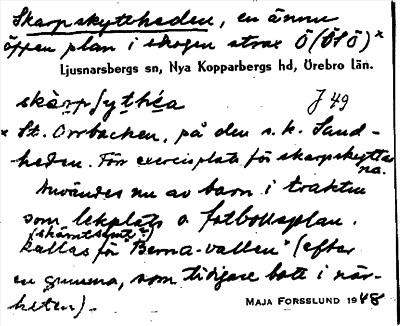 Skarpskytteheden, en ännu
öppen plan i skogen strax Ö (ÖSÖ)ˣ
Ljusnarsbergs sn, Nya Kopparbergs hd, Örebro län.
J 49
ˣ St. Orrbacken, på den s.k. Sand-
heden. Förr exercisplats för skarpskyttar-
na.
Användes nu av barn i trakten
som lekplats o fotbollsplan.
(skämtsamt?)
Kallas för "Berna-vallen" (efter
en gumma, som tidigare bott i när-
heten).
MAJA FORSSLUND 1948